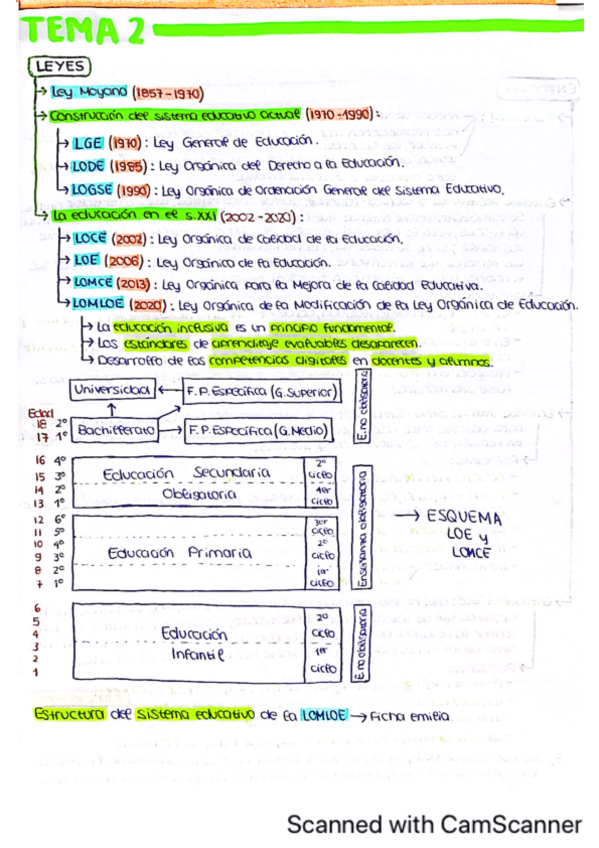 TEMA 2
LEYES
Ley Moyano (1857-1970)
Construcción del sistema educativo actual (1970-1990):
LGE (1970): Ley General de Educación.
LODE (1985): Ley Orgánica del Derecho a la Educación.
LOGSE (1990): Ley Orgánica de Ordenación General del Sistema Educativo.
La educación en el s.XXI (2002-2020):
LOCE (2002): Ley Orgánica de Calidad de la Educación.
LOE (2006): Ley Orgánica de la Educación.
LOMCE (2013): Ley Orgánica para la Mejora de la Calidad Educativa.
LOMLOE (2020): Ley Orgánica de la Modificación de la Ley Orgánica de Educación.
La educación inclusiva es un principio fundamental.
Los estándares de aprendizaje evaluables desaparecen.
Desarrollo de las competencias digitales en docentes y alumnos.
Universidad F.P. Específica (G.Superior)
E.no obligatoria
Edad
18 2º
17 1º
Bachillerato F.P. Específica (G.Medio)
16 4º
15 3º
14 2º
13 1º
Educación Secundaria
Obligatoria
2º
ciclo
1er
ciclo
12 6º
11 5º
10 4º
9 3º
8 2º
7 1º
Educación Primaria
3er
ciclo
2º
ciclo
1er
ciclo
Enseñanza obligatoria
ESQUEMA
LOE y
LOMCE
6
5
4
3
2
1
Educación
Infantil
2º
ciclo
1er
ciclo
E.no obligatoria
Estructura del sistema educativo de la LOMLOE → Ficha emilia.
Scanned with CamScanner